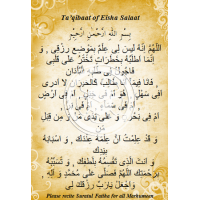 Ta'qibaat of Eisha Salaat
بِسْمِ اللَّهِ الرَّحْمَنِ الرَّحِيْمِ
اَللَّهُمَّ إِنَّهُ لَيْسَ لِي عِلْمٌ بِمَوْضِعِ رِزْقِي ، وَ
إِنَّمَا أَطْلُبُهُ بِخَطَرَاتٍ تَخْطُرُ عَلَى قَلْبِي
فَأَجُولُ فِي طَلَبِهِ الْبُلْدَانَ
فَأَنَا فِيمَا أَنَا طَالِبٌ كَالْحَيْرَانِ لَا أَدْرِي
أَ فِي سَهْلٍ هُوَ أَمْ فِي جَبَلٍ ، أَمْ فِي أَرْضٍ
أَمْ فِي سَمَاءٍ ،
أَمْ فِي بَرٍّ أَمْ فِي بَحْرٍ ، وَ عَلَى يَدَيْ مَنْ ، وَ مِنْ قِبَلِ
مَنْ
وَ قَدْ عَلِمْتُ أَنَّ عِلْمَهُ عِنْدَكَ ، وَ أَسْبَابَهُ
بِيَدِكَ
وَ أَنْتَ الَّذِي تَقْسِمُهُ بِلُطْفِكَ ، وَ تُسَبِّبُهُ
بِرَحْمَتِكَ اللَّهُمَّ فَصَلِّ عَلَى مُحَمَّدٍ وَ آلِهِ ،
وَ اجْعَلْ يَا رَبِّ رِزْقَكَ لِي
Please recite Suratul Fatiha for all Marhumeen